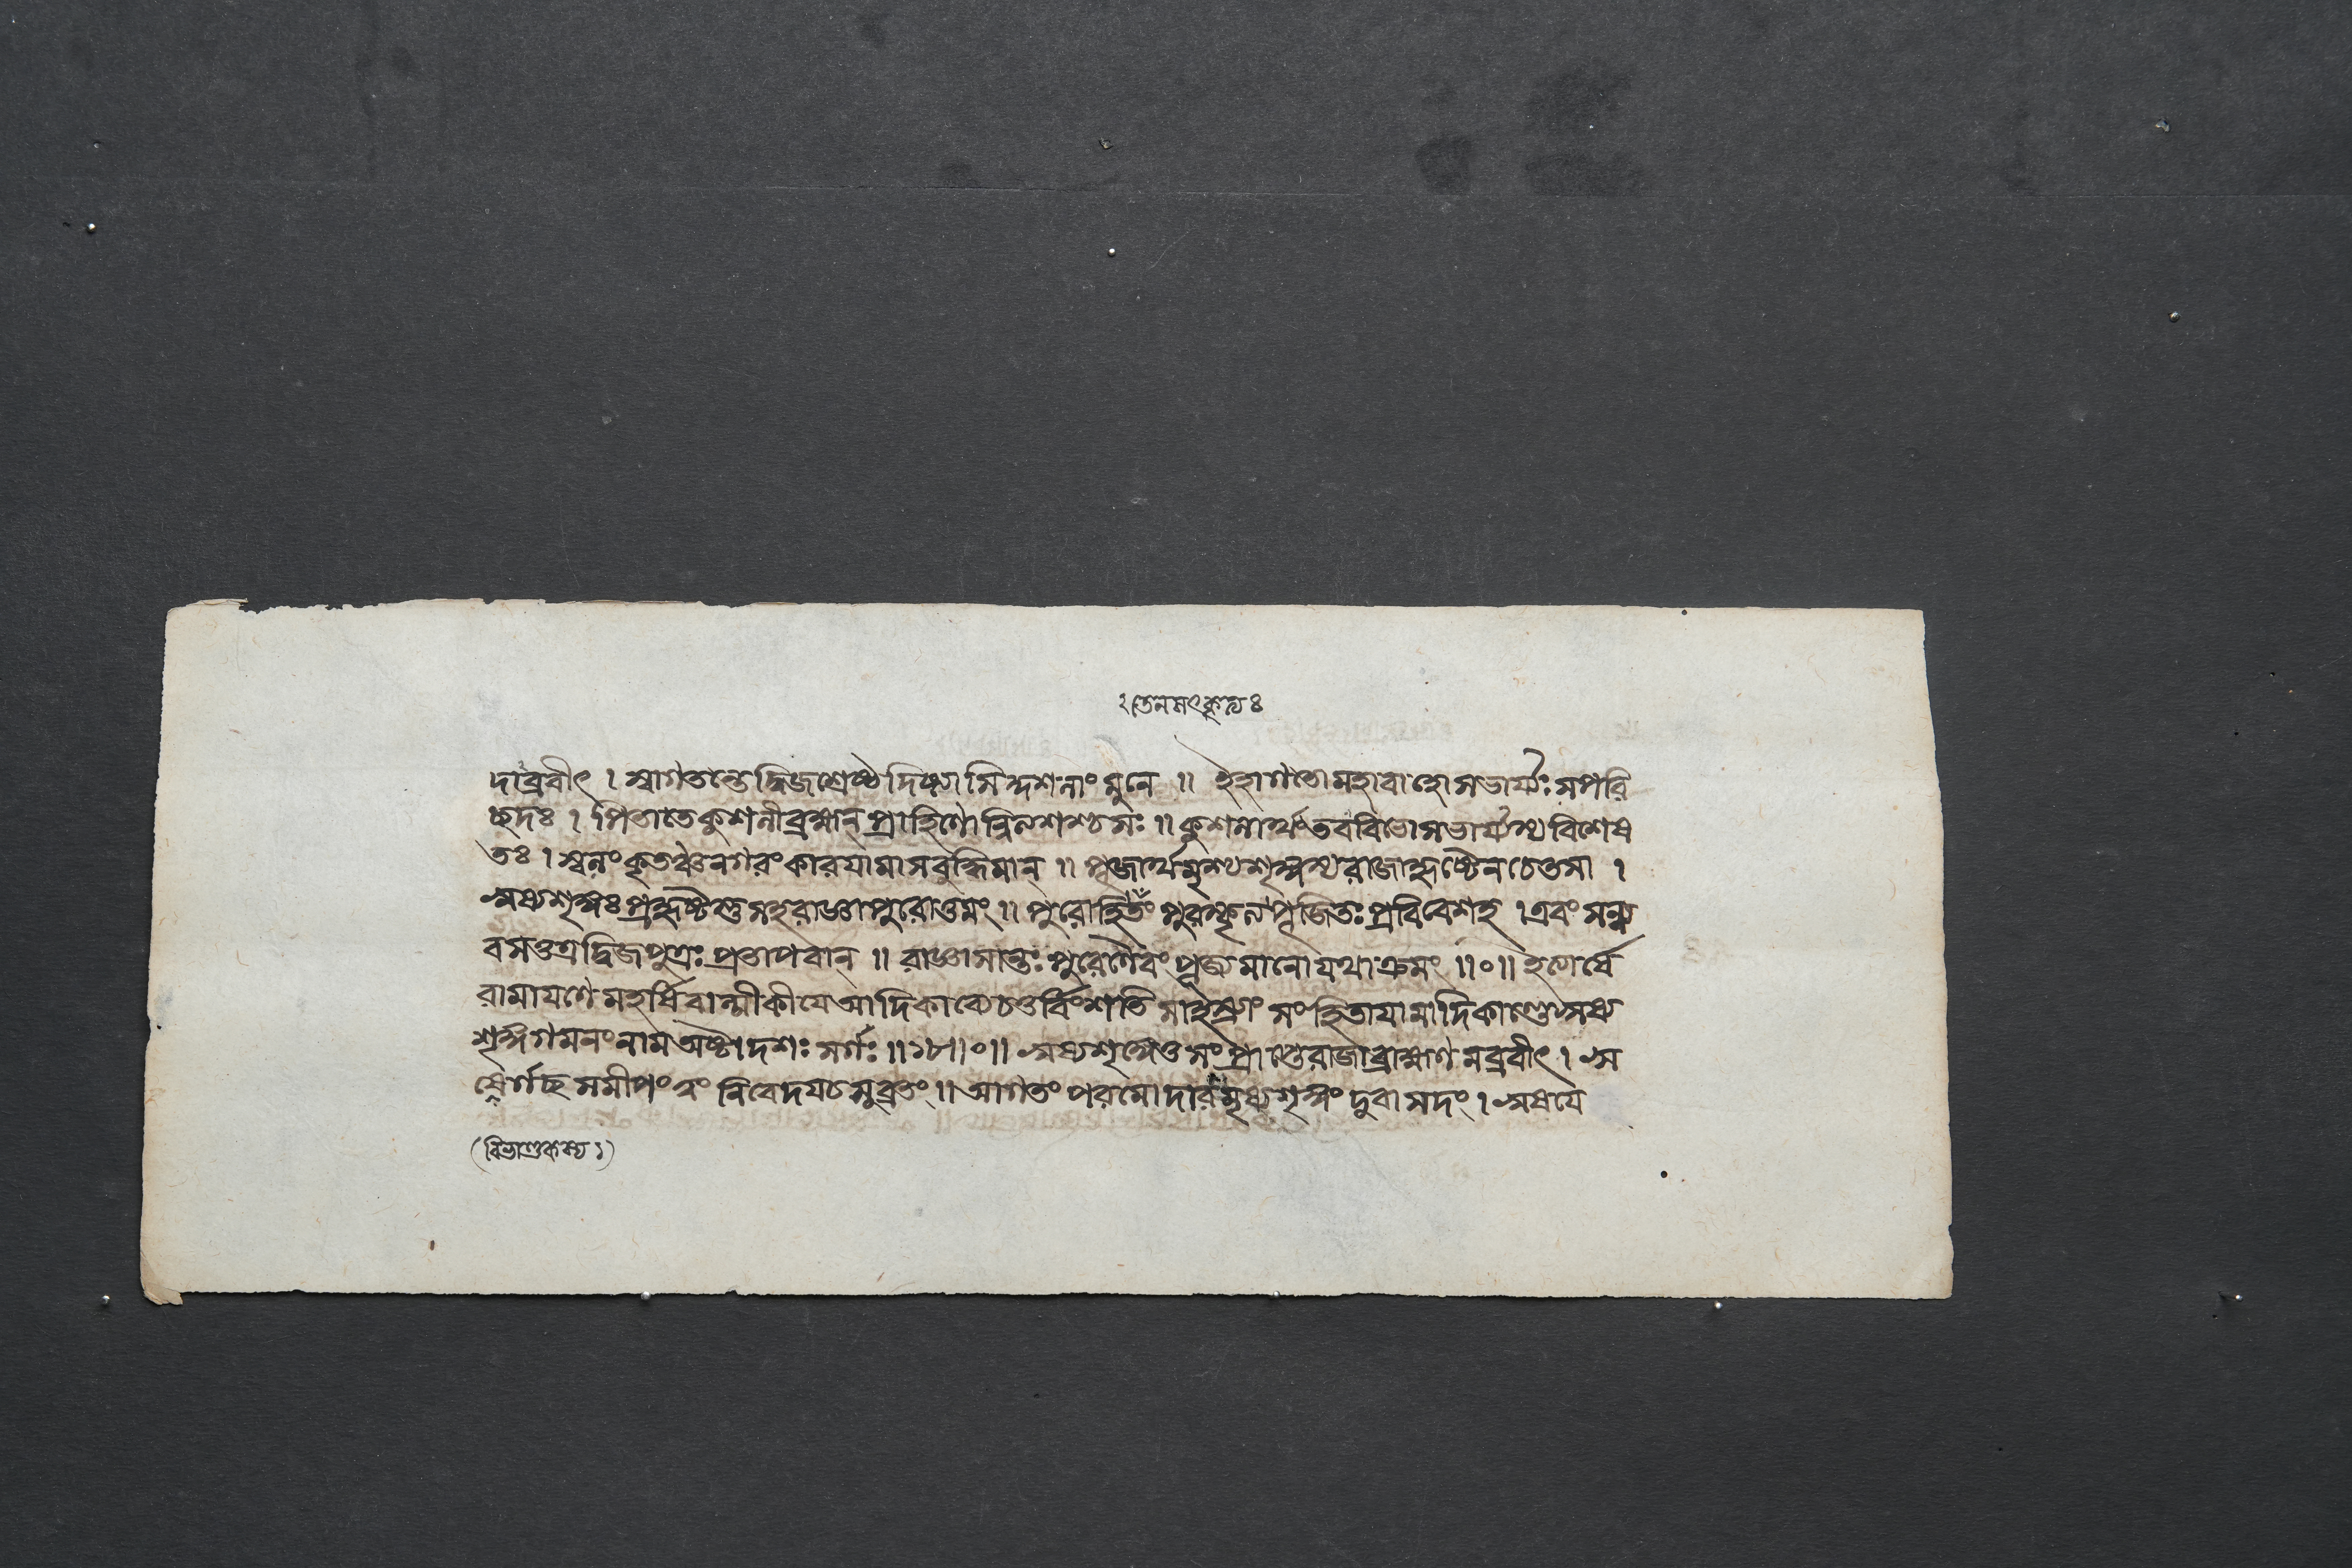 ২ তেনসৎকৃত্যঃ
দাব্রবীৎ । স্বাগতন্তেদ্বিজশ্রেষ্ঠদিষ্ট্যাসিন্দর্শনাংমুনে ॥ ইহাগতোমহাবাহোসভার্য্যঃসপরি
চ্ছদঃ । পিতাতেকুশলীব্রহ্মন্ প্রাহিণো
ত্তঃ । কৃতঞ্চনগরংকারযামাসবুদ্ধিমান্ ॥ পূজার্থমৃশ্যশৃঙ্গস্যরাজাহৃষ্টেনচেতসা ।
ঋষ্যশৃঙ্গঃপ্রহৃষ্টস্তুসহরাজ্ঞাপুরোত্তমং ॥ পুরোহিতং পুরস্কৃত্য পূজিতঃ প্রবিবেশহ । এবং
বসত্তত্রদ্বিজপুত্রঃ প্রতাপবান্ ॥ রাজ্ঞাসান্তঃপুরেণৈবং পূজ্যমানোযথাক্রমং ॥০॥ ইত্যার্ষে
রামাযণেমহর্ষিবাল্মীকীযেআদিকাব্যেচতুর্বিংশতিসাহস্র্যাং সংহিতাযামাদিকাণ্ডেঋষ্য
শৃঙ্গগমনংনামঅষ্টাদশঃ সর্গঃ ॥১৮॥০॥ ঋষ্যশৃঙ্গেতুসংপ্রাপ্তেরাজাব্রাহ্মণমব্রবীৎ । ঋ
ষের্গচ্ছসমীপং ত্বং নিবেদযচসুব্রতং ॥ আগতং পরমোদারমৃষ্যশৃঙ্গং দুরাসদং । ঋষযে
(বিভাণ্ডকস্য ১)